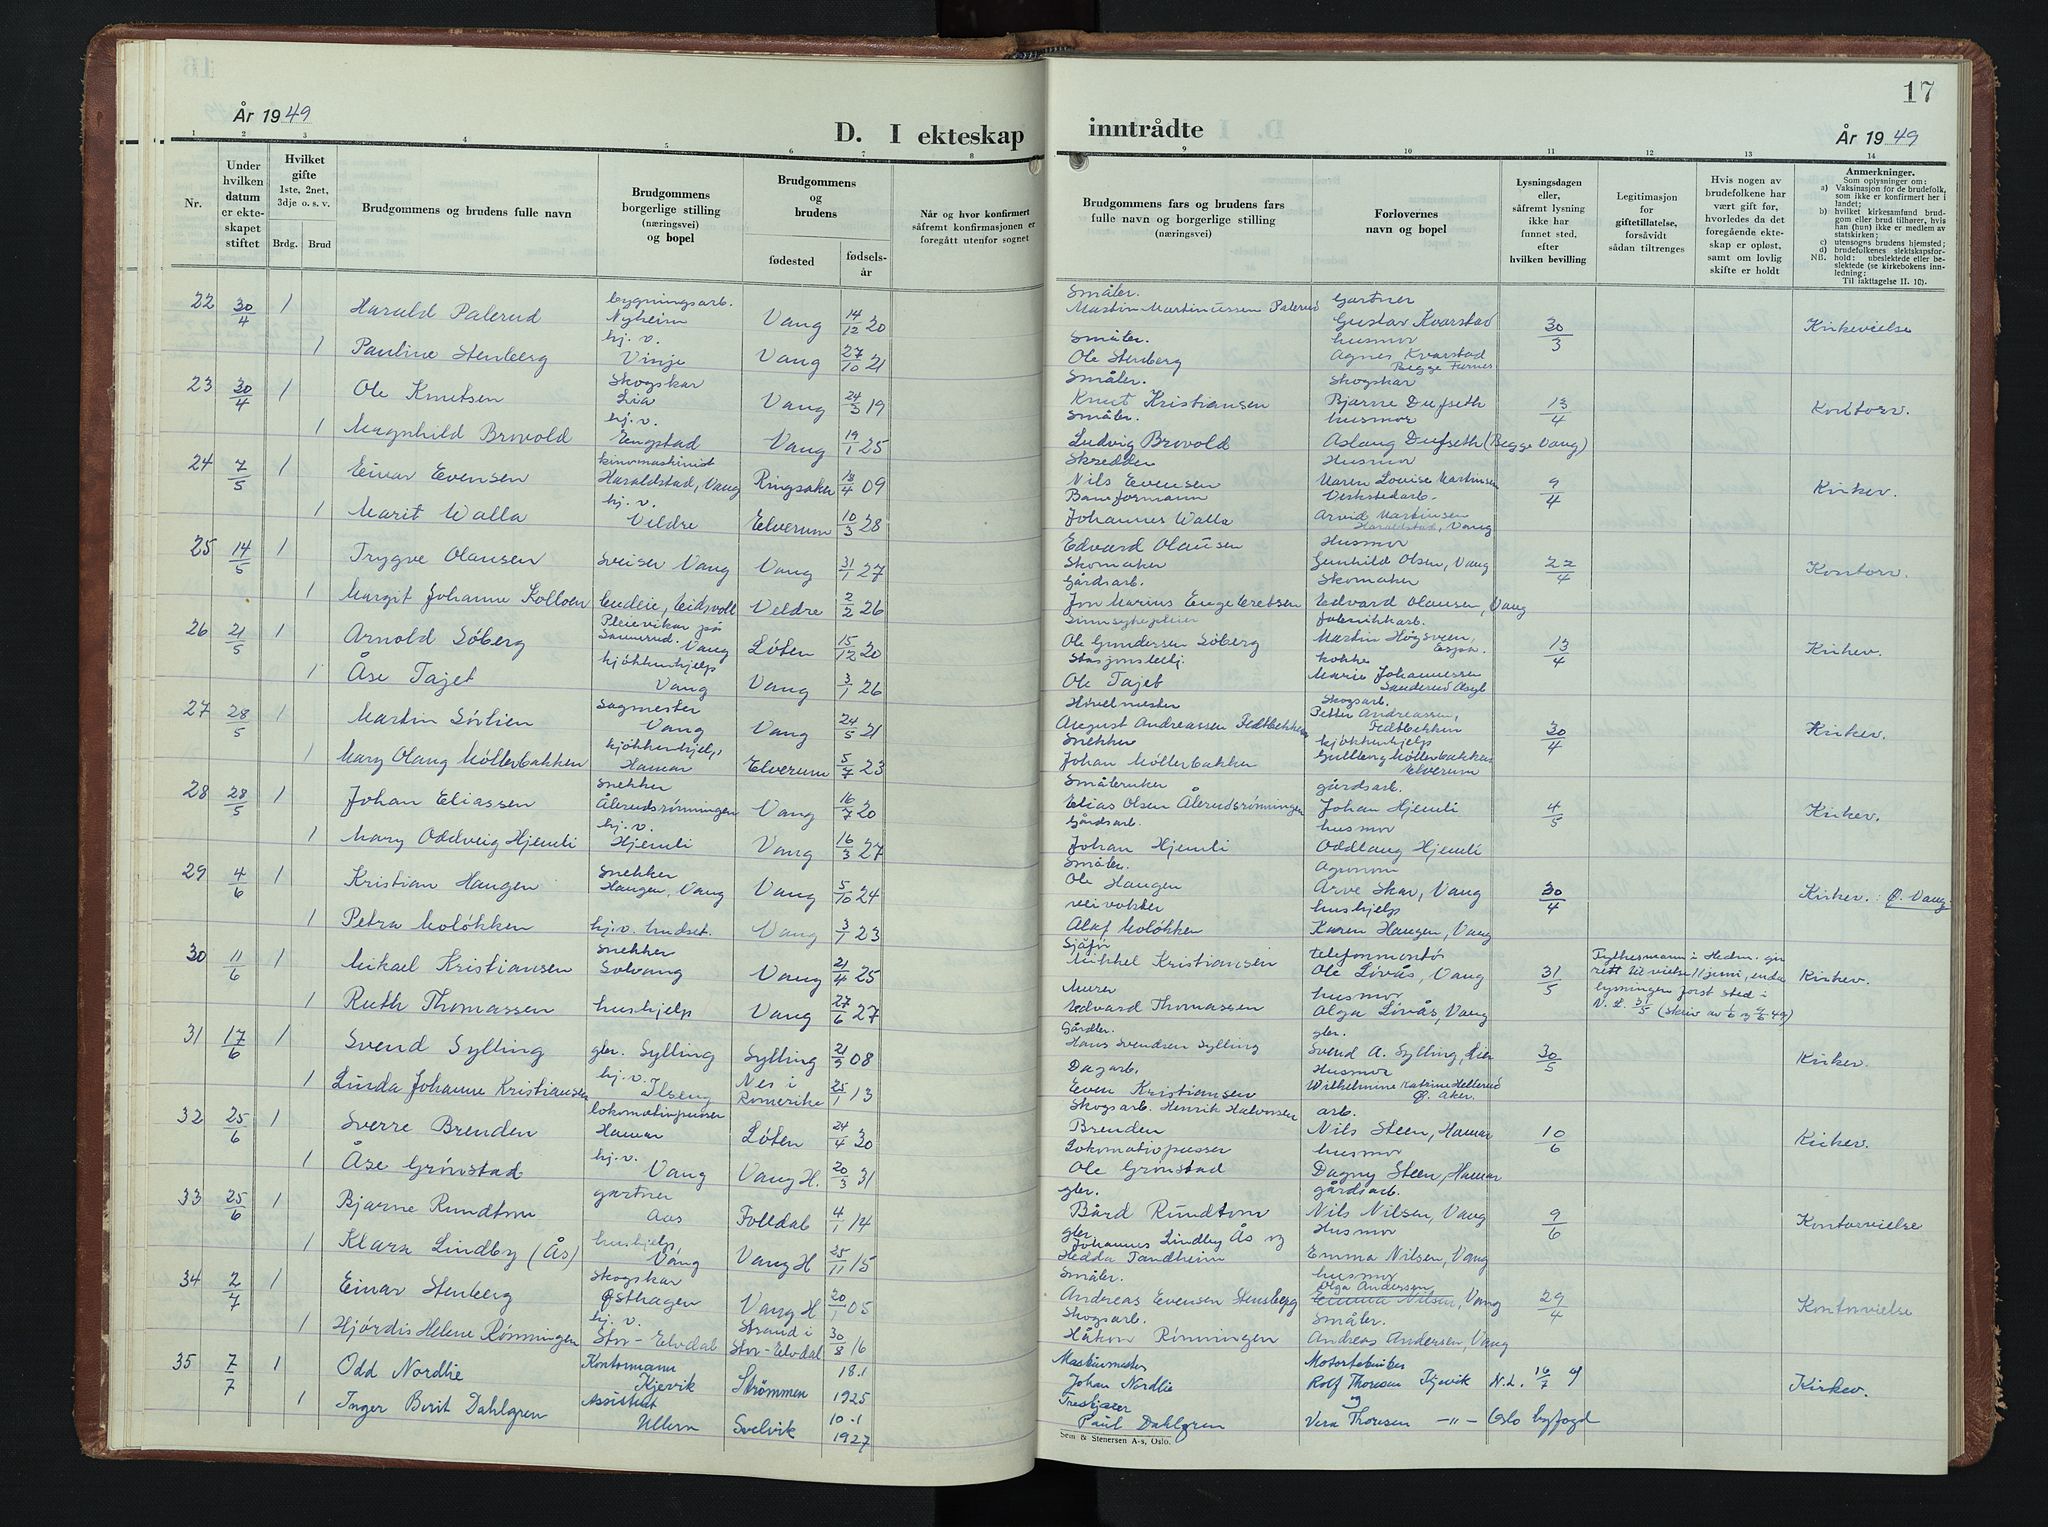 År 1949
D. I ekteskap
1 2 3 4 5 6 7 8
Nr.
Under hvilken datum er ekteskapet stiftet
Hvilket gifte 1ste, 2net, 3dje o. s. v.
Brdg. Brud
Brudgommens og brudens fulle navn
Brudgommens borgerlige stilling (næringsvei) og bopel
Brudgommens og brudens
fødested
fødselsår
Når og hvor konfirmert såfremt konfirmasjonen er foregått utenfor sognet
22 30/4 1 Harald Palerud bygningsarb. Nyheim Vang 14/12 20
1 Pauline Stenberg hj. v. Vinje Vang 27/10 21
23 30/4 1 Ole Knutsen Skogskar Lia Vang 24/3 19
1 Magnhild Brovold hj. v. Engstad Vang 19/1 25
24 7/5 1 Eivar Evensen kinomaskinist Haraldstad, Vang Ringsaker 18/4 09
1 Marit Walla hj. v. Veldre Elverum 10/3 28
25 14/5 1 Trygve Olausen Sveiser Vang Vang 31/1 27
1 Margit Johanne Kolloen Eidsvoll Veldre 2/2 26
26 21/5 1 Arnold Søberg Pleievikar på Sanderud. Vang Løten 15/12 20
1 Åse Tajet kjøkkenhjelp Vang Vang 3/1 26
27 28/5 1 Martin Sørlien Sagmester Vang Vang 24/5 21
1 Mary Olaug Møllerbakken kjøkkenhjelp, Hamar Elverum 5/7 23
28 28/5 1 Johan Eliassen Snekker Ålerudsrønningen Vang 16/7 20
1 Mary Oddveig Hjemli hj. v. Hjemli Vang 16/3 27
29 4/6 1 Kristian Haugen Snekker Haugen, Vang Vang 5/10 24
1 Petra Moløkken hj. v. Lundset. Vang 3/1 23
30 11/6 1 Mikael Kristiansen Snekker Solvang Vang 21/4 25
1 Ruth Thomassen hushjelp Vang 27/6 27
31 17/6 1 Svend Sylling gbr. Sylling Sylling 21/3 08
1 Linda Johanne Kristiansen hj. v. Ilseng Nes i Romerike 25/1 13
32 25/6 1 Sverre Brenden lokomotivpusser Hamar Løten 24/4 30
1 Åse Grønstad hj. v. Vang Vang H. 20/3 31
33 25/6 1 Bjarne Rundtom gartner Aas Folldal 4/1 14
1 Klara Lindby (Ås) hushjelp, Vang Vang H 25/11 15
34 2/7 1 Einar Stenberg Skogskar Østhagen Vang H 20/1 05
1 Hjördis Helene Rønningen hj. v. Stor-Elvdal Strand i Stor-Elvdal 30/8 16
35 7/7 1 Odd Nordlie Kontormann Kjevik Strømmen 18.1 1925
1 Inger Berit Dahlgren Assistent Ullern Svelvik 10.1 1927
17
inntrådte
År 1949
9 10 11 12 13 14
Brudgommens fars og brudens fars fulle navn og borgerlige stilling (næringsvei)
Forlovernes navn og bopel
Lysningsdagen eller, såfremt lysning ikke har funnet sted, efter hvilken bevilling
Legitimasjon for giftetillatelse, forsåvidt sådan tiltrenges
Hvis nogen av brudefolkene har vært gift før, hvorledes da det foregående ekteskap er opløst, samt om lovlig skifte er holdt
Anmerkninger.
Som oplysninger om:
a) Vaksinasjon for de brudefolk, som ikke er konfirmert her i landet;
b) hvilket kirkesamfund brudgom eller brud tilhører, hvis han (hun) ikke er medlem av statskirken;
c) utensogns brudens hjemsted;
d) brudefolkenes slektskapsforhold: ubeslektede eller beslektede (se kirkebokens innledning:
NB.
Til iakttagelse II. 10).
Småbr. Martin Martinussen Palerud Gartner Gustav Kvarstad 30/3 Kirkevielse
Småbr. Ole Stenberg husmor Agnes Kvarstad Begge Furnes
Småbr. Knut Kristiansen Skogskar Bjarne Dufseth 13/4 Kontorv.
Småbr. Ludvig Brovold husmor Aslaug Dufseth (Begge Vang)
Skredder Nils Evensen Husmor Maren Lovise Martinsen 9/4 Kirkev.
Baneformann Johannes Walla Verkstedarb. Arvid Martinsen Haraldstad, Vang
Edvard Olausen Skomaker Husmor Gunhild Olsen, Vang 22/4 Kontorv.
Gårdsarb. Jon Marius Engebretsen Skomaker Edvard Olausen, Vang
Sinnsykepleier Ole Gundersen Søberg fabrikkarb. Martin Høgsveen, Espa. 13/4 Kirkev.
Stasjonsbetj. Ole Tajet kokke Marie Johannessen Sanderud Asyl
Høvelmester August Andreassen Fedtbekken Skogsarb. Petter Andreassen, Fedtbekken 30/4 Kirkev.
Snekker Johan Møllerbakken kjøkkenhjelp Gullborg Møllerbakken Elverum
Småbruker Elias Olsen Ålerudsrønningen gårdsarb. Johan Hjemli 4/5 Kirkev.
Gårdsarb. Johan Hjemli husmor Oddlaug Hjemli
Småbr. Ole Haugen Agronom Arve Skar, Vang 30/4 Kirkev. : Ø. Vang.
veivokter Olaf Moløkken hushjelp Karen Haugen, Vang
Sjåfør Mikkel Kristiansen telefonmontør Ole Livås, Vang 31/5 Kirkev.
Fylkesmann i Hedm. gir rett til vielse 11 juni, enda lysningen først sted i V. H. 31/5 (skriv av 1/6 og 3/6 49)
Murer Edvard Thomassen husmor Olga Livås, Vang
Gårdbr. Hans Svendsen Sylling gbr. Svend A. Sylling, Lier 30/5 Kirkev.
Dagarb. Even Kristiansen Husmor Wilhelmine Katrine Hellerud Ø. Aker.
Skogsarb. Henrik Halvorsen Brenden arb. Nils Steen, Hamar 10/6 Kirkev.
Lokomotivpusser Ole Grønstad husmor Dagny Steen, Hamar
gbr. Bård Rundtom gårdsarb. Nils Nilsen, Vang 9/6 Kontorvielse
gbr. Johannes Lindby Ås og Hedda Tandheim Husmor Emma Nilsen, Vang
Småbr. Andreas Evensen Stensberg husmor Olga Andersen Emma Nilsen, Vang 29/4 Kontorvielse
Skogsarb. Håkon Rønningen Småbr. Andreas Andersen, Vang
Maskinmester Johan Nordlie Motortekniker Rolf Thoresen Kjevik N.L. 16/7 49 Kirkev.
Trearbeider Paul Dahlgren og Vera Thoresen -"- Oslo byfogd
Sem & Stenersen A-s, Oslo.